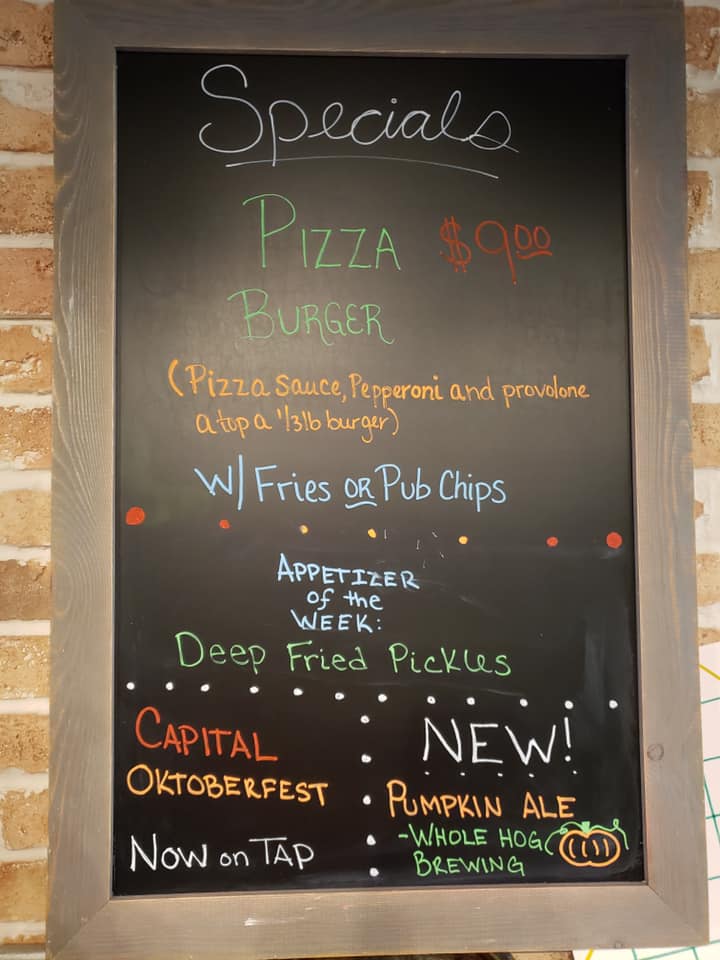 Specials
PIZZA $9.00
BURGER
(Pizza sauce, Pepperoni and provolone
a top a 1/3lb burger)
W/ Fries OR Pub Chips
APPETIZER
of the
WEEK:
Deep Fried Pickles
CAPITAL
OKTOBERFEST
NOW on TAP
NEW!
PUMPKIN ALE
-WHOLE HOG
BREWING